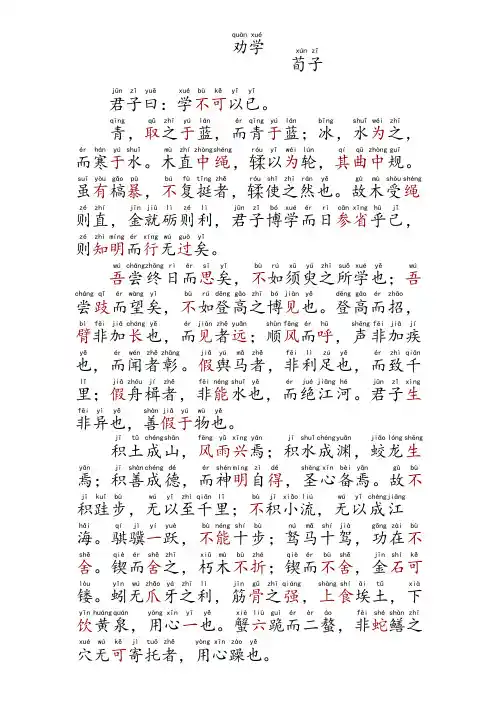 quàn xué
劝学
xún zǐ
荀子
jūn zǐ yuē xué bù kě yǐ yǐ
君子曰：学不可以已。
qīng qǔ zhī yú lán ér qīng yú lán bīng shuǐ wéi zhī
青，取之于蓝，而青于蓝；冰，水为之，
ér hán yú shuǐ mù zhí zhòng shéng róu yǐ wéi lún qí qū zhòng guī
而寒于水。木直中绳，輮以为轮，其曲中规。
suī yòu gǎo pù bú fù tǐng zhě róu shǐ zhī rán yě gù mù shòu shéng
虽有槁暴，不复挺者，輮使之然也。故木受绳
zé zhí jīn jiù lì zé lì jūn zǐ bó xué ér rì cān xǐng hū jǐ
则直，金就砺则利，君子博学而日参省乎己，
zé zhì míng ér xíng wú guò yǐ
则知明而行无过矣。
wú cháng zhōng rì ér sī yǐ bù rú xū yú zhī suǒ xué yě wú
吾尝终日而思矣，不如须臾之所学也；吾
cháng qǐ ér wàng yǐ bù rú dēng gāo zhī bó jiàn yě dēng gāo ér zhāo
尝跂而望矣，不如登高之博见也。登高而招，
bì fēi jiā cháng yě ér jiàn zhě yuǎn shùn fēng ér hū shēng fēi jiā jí
臂非加长也，而见者远；顺风而呼，声非加疾
yě ér wén zhě zhāng jiǎ yú mǎ zhě fēi lì zú yě ér zhì qiān
也，而闻者彰。假舆马者，非利足也，而致千
lǐ jiǎ zhōu jí zhě fēi néng shuǐ yě ér jué jiāng hé jūn zǐ xìng
里；假舟楫者，非能水也，而绝江河。君子生
fēi yì yě shàn jiǎ yú wù yě
非异也，善假于物也。
jī tǔ chéng shān fēng yǔ xīng yān jī shuǐ chéng yuān jiāo lóng shēng
积土成山，风雨兴焉；积水成渊，蛟龙生
yān jī shàn chéng dé ér shén míng zì dé shèng xīn bèi yān gù bù
焉；积善成德，而神明自得，圣心备焉。故不
jī kuǐ bù wú yǐ zhì qiān lǐ bù jī xiǎo liú wú yǐ chéng jiāng
积跬步，无以至千里；不积小流，无以成江
hǎi qí jì yí yuè bù néng shí bù nú mǎ shí jià gōng zài bù
海。骐骥一跃，不能十步；驽马十驾，功在不
shě qiè ér shě zhī xiǔ mù bù zhé qiè ér bù shě jīn shí kě
舍。锲而舍之，朽木不折；锲而不舍，金石可
lòu yǐn wú zhǎo yá zhī lì jīn gǔ zhī qiáng shàng shí āi tǔ xià
镂。蚓无爪牙之利，筋骨之强，上食埃土，下
yǐn huáng quán yòng xīn yī yě xiè liù guì ér èr áo fēi shé shàn zhī
饮黄泉，用心一也。蟹六跪而二螯，非蛇鳝之
xué wú kě jì tuō zhě yòng xīn zào yě
穴无可寄托者，用心躁也。